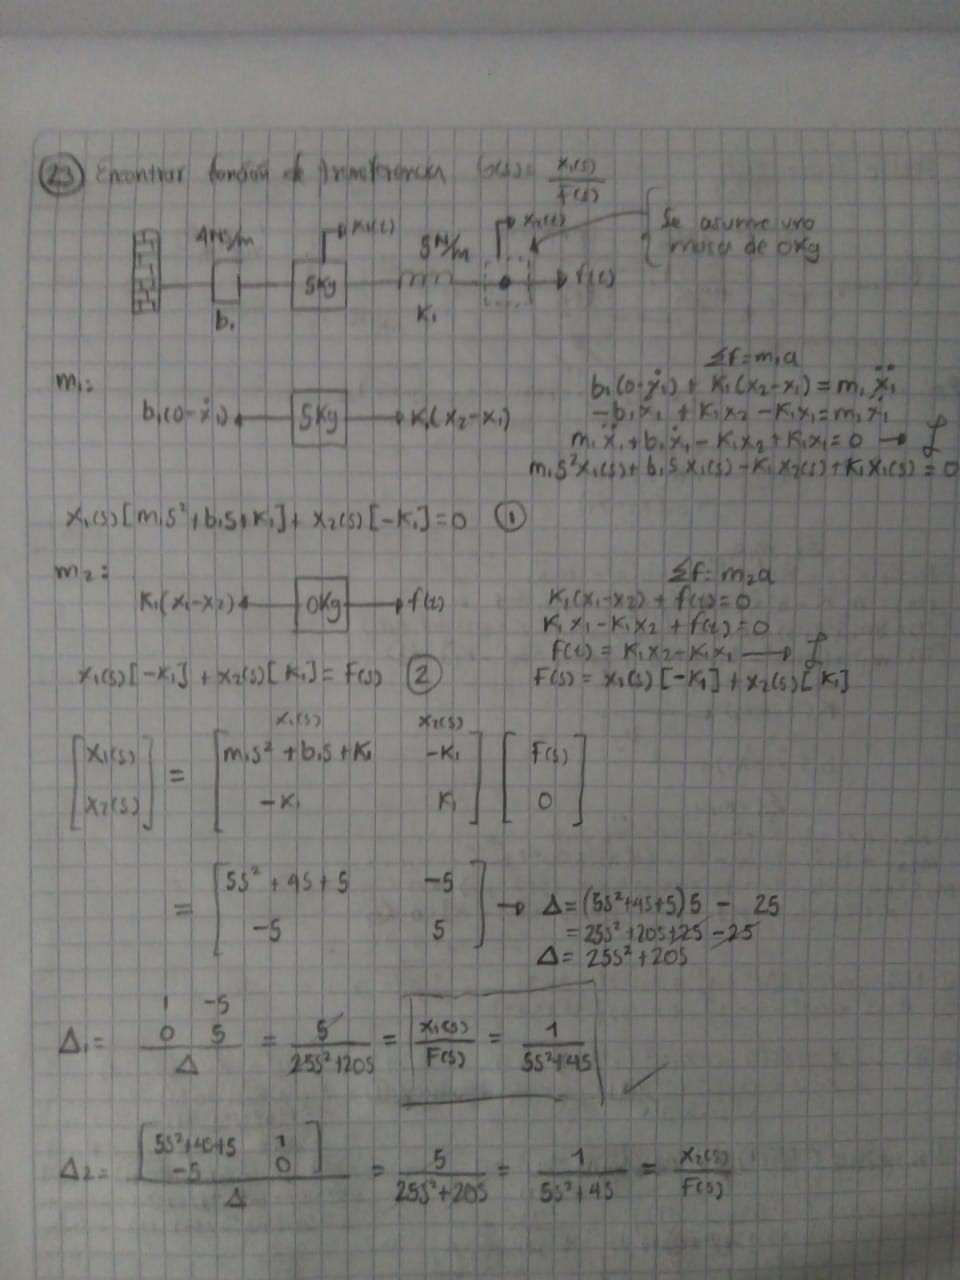 23 Encontrar función de transferencia G(s) = x₁(s)/F(s)
4Ns/m x₁(t) 5N/m x₂(t) Se asume una
masa de 0Kg
5Kg f(t)
b₁ K₁
Σf=m₁a
m₁:
b₁(0-ẋ₁) 5Kg K₁(x₂-x₁)
b₁(0-ẋ₁) + K₁(x₂-x₁) = m₁ẍ₁
-b₁ẋ₁ + K₁x₂ - K₁x₁ = m₁ẍ₁
m₁ẍ₁+b₁ẋ₁-K₁x₂+K₁x₁=0 → ℒ
m₁s²x₁(s)+b₁s x₁(s)-K₁x₂(s)+K₁x₁(s)=0
x₁(s)[m₁s²+b₁s+K₁]+x₂(s)[-K₁]=0 ①
m₂: Σf=m₂a
K₁(x₁-x₂) 0Kg f(t)
K₁(x₁-x₂)+f(t)=0
K₁x₁-K₁x₂+f(t)=0
f(t)=K₁x₂-K₁x₁ → ℒ
x₁(s)[-K₁]+x₂(s)[K₁]=F(s) ②
F(s)=x₁(s)[-K₁]+x₂(s)[K₁]
x₁(s) x₂(s)
[x₁(s)] = [m₁s²+b₁s+K₁ -K₁] [F(s)]
[x₂(s)] [-K₁ K₁] [0]
= [5s²+4s+5 -5]
[-5 5] → Δ=(5s²+4s+5)5 - 25
=25s²+20s+25-25
Δ=25s²+20s
1 -5
0 5
Δ₁= /Δ = 5/25s²+20s = x₁(s)/F(s) = 1/5s²+4s
[5s²+4s+5 1]
[-5 0]
Δ₂= /Δ = 5/25s²+20s = 1/5s²+4s = x₂(s)/F(s)